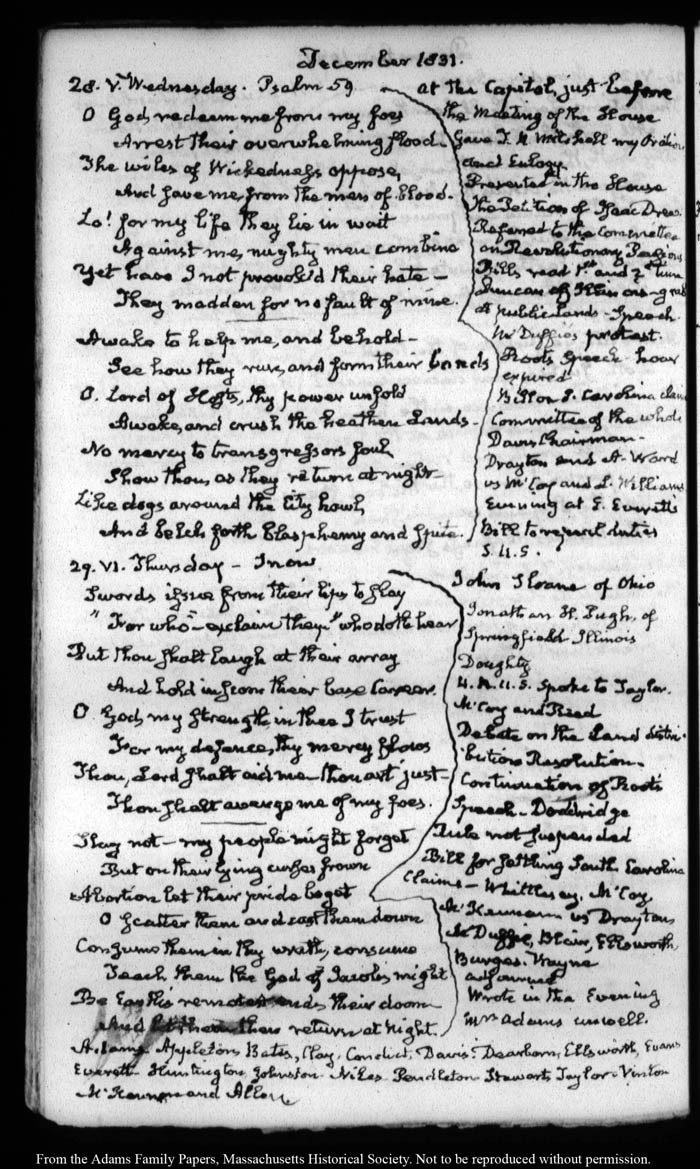 December 1831.
28. V. Wednesday. Psalm 59
O God, redeem me from my foes
Arrest their overwhelming flood.
The wiles of Wickedness oppose,
And save me from the men of blood.
Lo! for my life they lie in wait
Against me, mighty men combine
Yet have I not provok'd their hate —
They madden for no fault of mine.
Awake to help me, and behold —
See how they run, and form their bands
O. Lord of Hosts, thy power unfold
Awake, and crush the heathen Lands.
No mercy to transgressors foul
Show thou, as they return at night
Like dogs around the City howl,
And belch forth blasphemy and spite.
at the Capitol, just before
the Meeting of the House
Gave T. R. Mitchell my Oration
and Eulogy
Presented in the House
the Petition of Isaac
Referred to the Committee
on Revolutionary Pensions
Bills read 1st and 2d time
Duncan of Illinois — grad
of public Lands — Speech.
Mc Duffie's protest.
Roots Speech — hour
expired
Bill on S. Carolina claims
Committee of the whole
Davis Chairman —
Drayton and A. Ward
vs McCoy and L. Williams
Evening at E. Everett's
Bill to repeal duties
S. U. S.
29. VI. Thursday — Snow
Swords issue from their lips to slay
"For who" — exclaim they "who doth hear
But thou shalt laugh at their array
And hold in scorn their base Career.
O God, my strength, in thee I trust
For my defence, thy mercy flows
Thou, Lord shalt aid me — thou art just —
Thou shalt avenge me of my foes.
Slay not — my people might forget
But on their lying curses frown
Abortion let their pride beget
O scatter them and cast them down
Consume them in thy wrath, consume
Teach them the God of Jacob's might
Be Earth's remotest ends, their doom
And let them then return at night.
John Sloane of Ohio
Jonathan H. Pugh, of
Springfield Illinois
Doughty
H. R. U. S. Spoke to Taylor.
McCoy and Reed
Debate on the Land distri-
bution Resolution.
Continuation of Roots
Speech — Doddridge
Rule not suspended
Bill for settling South Carolina
Claims — Whittlesey, McCoy
McKennan vs Drayton
McDuffie, Blair, Ellsworth,
Burges. Wayne
adjourned
Wrote in the Evening
Mrs Adams unwell.
Adams. Appleton, Bates, Clay, Condict, Davis. Dearborn, Ellsworth, Evans
Everett. Huntington, Johnston. Niles. Pendleton. Stewart, Taylor. Vinton
McKennan and Allen
From the Adams Family Papers, Massachusetts Historical Society. Not to be reproduced without permission.